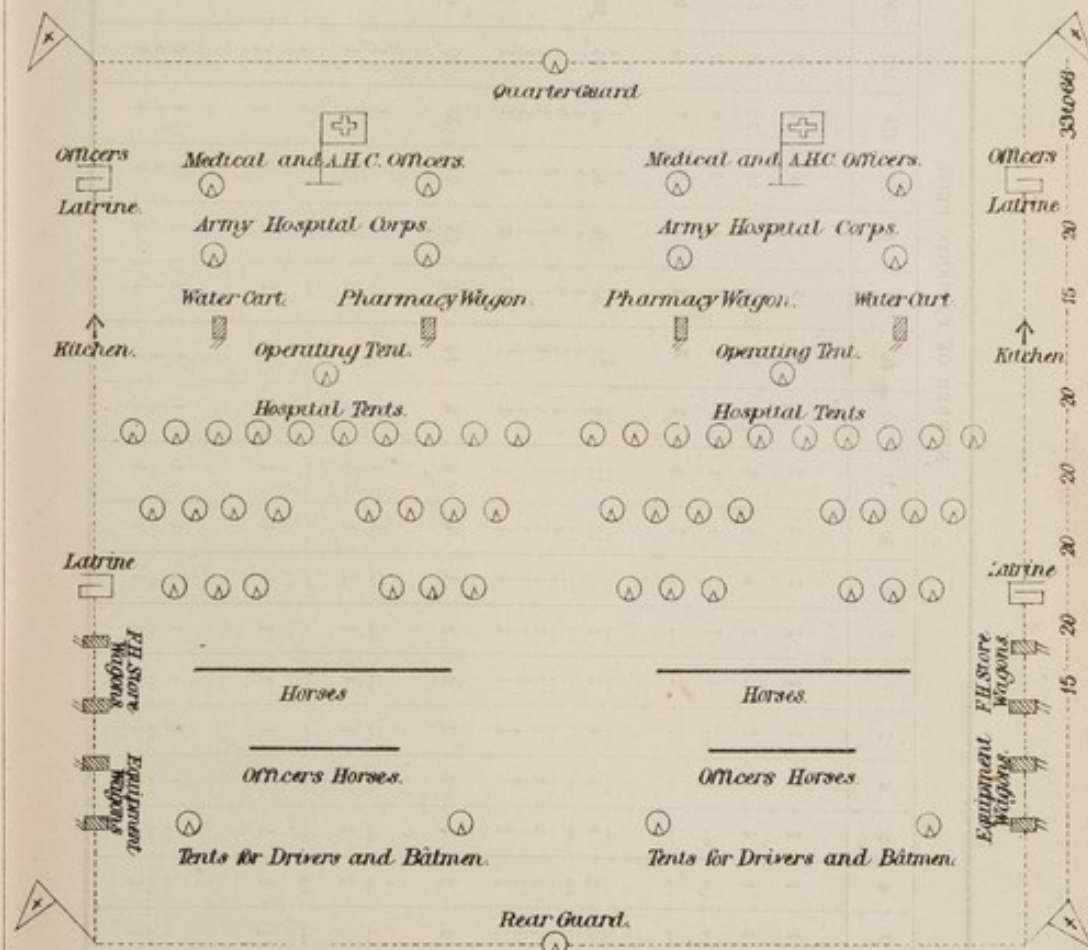 Quarter Guard
33to66
Officers
Latrine.
Medical and A.H.C. Officers.
Medical and A.H.C. Officers.
Officers
Latrine
Army Hospital Corps.
Army Hospital Corps.
20
Water Cart.
Pharmacy Wagon.
Pharmacy Wagon.
Water Cart
15
Kitchen.
Operating Tent.
Operating Tent.
Kitchen
Hospital Tents.
Hospital Tents
20
20
Latrine
Latrine
20
F.H. Store
Wagons.
F.H. Store
Wagons.
20
Horses
Horses.
15
Equipment
Wagons
Officers Horses.
Officers Horses.
Equipment
Wagons.
Tents for Drivers and Bâtmen.
Tents for Drivers and Bâtmen.
Rear Guard.